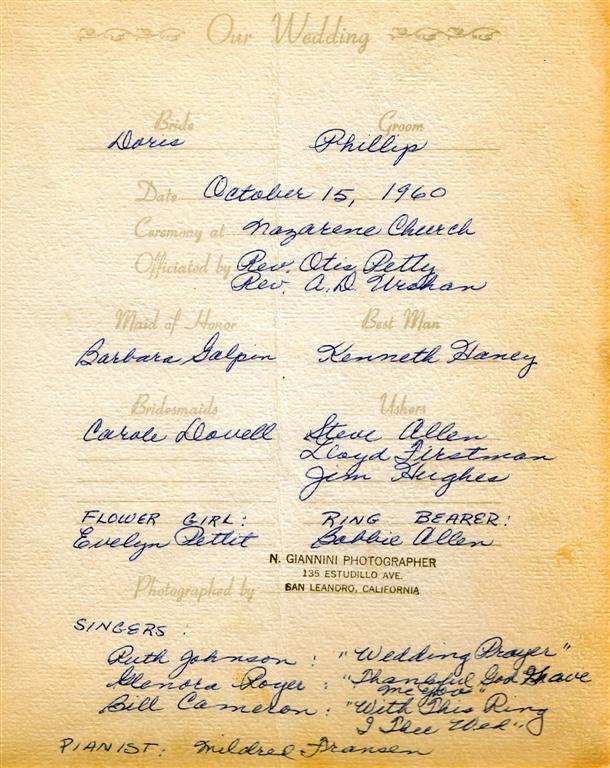 Our Wedding
Bride Groom
Doris Phillip
Date October 15, 1960
Ceremony at Nazarene Church
Officiated by Rev. Otis Petty
Rev. A.D. Urshan
Maid of Honor Best Man
Barbara Galpin Kenneth Haney
Bridesmaids Ushers
Carole Dovell Steve Allen
Lloyd Firstman
Jim Hughes
FLOWER GIRL: RING BEARER:
Evelyn Pettit Bobbie Allen
N. GIANNINI PHOTOGRAPHER
135 ESTUDILLO AVE.
Photographed by SAN LEANDRO, CALIFORNIA
SINGERS:
Ruth Johnson: "Wedding Prayer"
Glenora Royer: "Thankful God Gave
me you"
Bill Cameron: "With This Ring
I Thee Wed"
PIANIST: Mildred Fransen